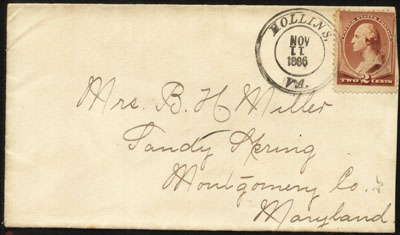 HOLLINS,
NOV
11
1886
VA.
TWO 2 CENTS
Mrs. B. H Miller
Sandy Spring
Montgomery Co.
Maryland